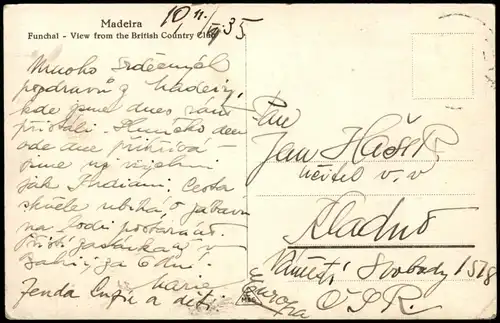 Madeira
Funchal - View from the British Country Club
10/II 35.
Mnoho srdečných
pozdravů z Madeiry,
kde jsme dnes ráno
přistáli. Sluníčko den
ode dne přibývá
jsme už
jak Indiani. Cesta
skvěle ubíhá, o zábavu
na lodi postaráno.
Příští zastávka v
za 6 dní.
Marie
Jenda a děti.
Pan
Jan Hašek
učitel v. v.
Kladno
Náměstí Svobody 1578
Č.S.R.
Europa